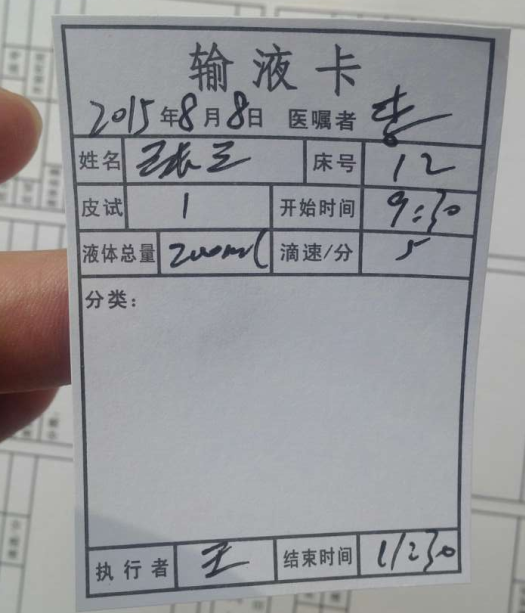 输液卡
2015年8月8日 医嘱者 李
姓名 张三 床号 12
皮试 1 开始时间 9:30
液体总量 200ml 滴速/分 5
分类：
执行者 王 结束时间 11:30